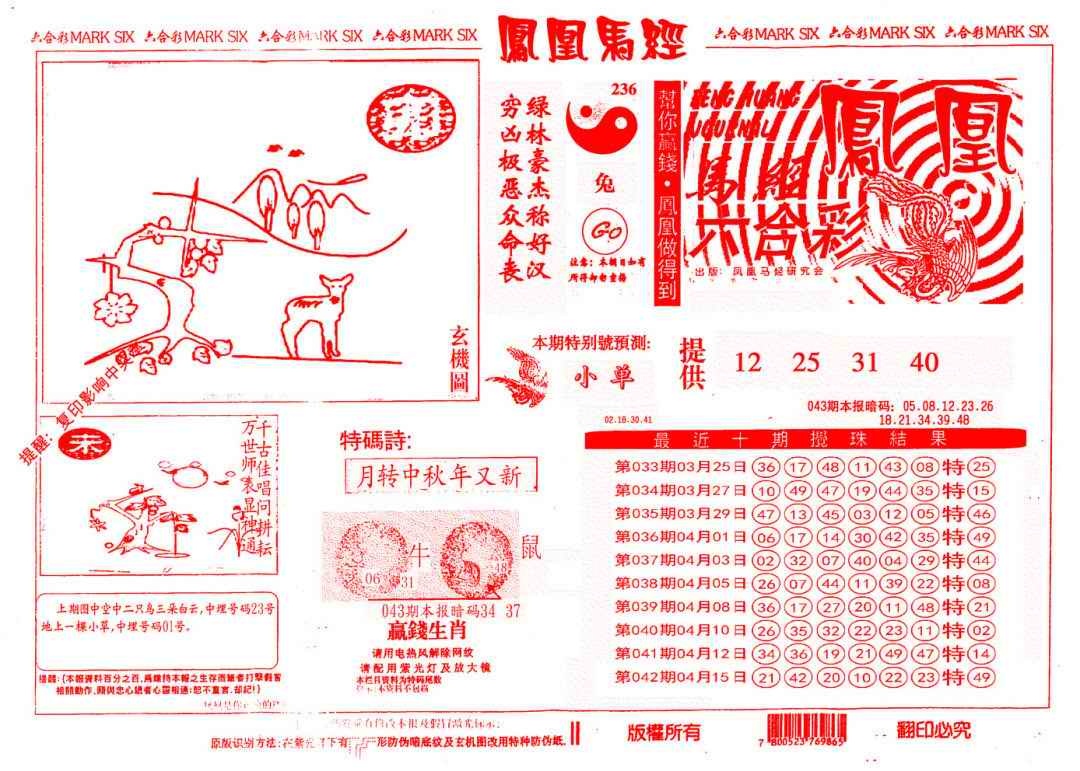 六合彩MARK SIX 六合彩MARK SIX 六合彩MARK SIX 六合彩MARK SIX
鳳凰馬經
六合彩MARK SIX 六合彩MARK SIX 六合彩MARK SIX
玄機圖
提醒：复印影响中奖
绿林豪杰称好汉
穷凶极恶众命丧
236
兔
Go
注意：本期日如有
所得却勿重播
幫你赢錢・鳳凰做得到
FENG HUANG
JOURNAL
鳳凰
馬經
六合彩
出版：凤凰马经研究会
本期特别號預測:
小单
提供
12 25 31 40
043期本报暗码：05.08.12.23.26
18.21.34.39.48
02.16.30.41
最近十期攪珠結果
第033期03月25日 36 17 48 11 43 08 特 25
第034期03月27日 10 49 47 19 44 35 特 15
第035期03月29日 47 13 45 03 12 05 特 46
第036期04月01日 06 17 14 30 42 35 特 49
第037期04月03日 02 32 07 40 04 29 特 44
第038期04月05日 26 07 44 11 39 22 特 08
第039期04月08日 36 17 27 20 11 48 特 21
第040期04月10日 26 35 32 22 23 11 特 02
第041期04月12日 34 36 19 21 49 47 特 14
第042期04月15日 21 42 20 10 22 23 特 49
未
千古佳唱问耕耘
万世师表显神通
特碼詩:
月转中秋年又新
牛
鼠
06 31
48
043期本报暗码34 37
赢錢生肖
请用电热风解除网纹
请配用紫光灯及放大镜
本栏目资料为特码尾数
上期图中空中二只鸟三朵白云,中埋号码23号
地上一棵小草,中埋号码01号。
提醒：(本報資料百分之百,為維持本報之生存而筆者打擊假冒
相關動作,願與忠心讀者心靈相通：恕不直言,却記！)
原版识别方法:在紫光灯下有
形防伪暗底纹及玄机图改用特种防伪纸.
版權所有
7 800523 769865
翻印必究